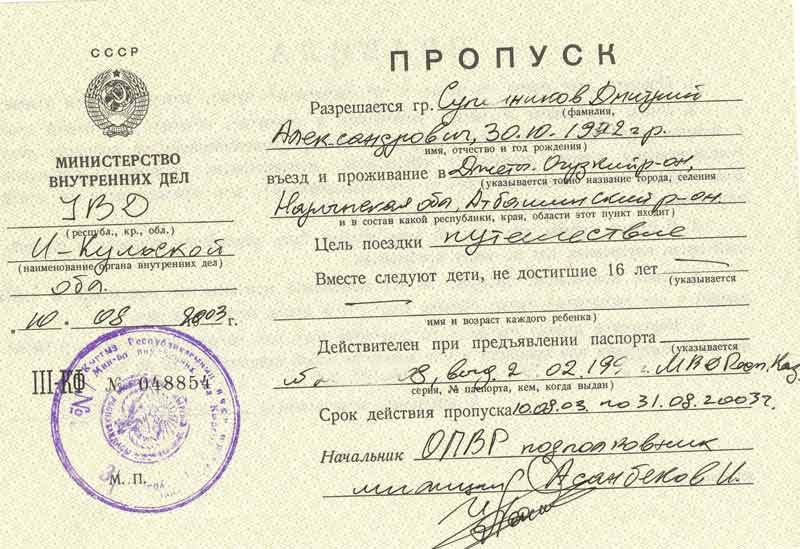 СССР
МИНИСТЕРСТВО
ВНУТРЕННИХ ДЕЛ
УВД
(республ., кр., обл.)
И-Кульской
(наименование органа внутренних дел)
оба.
10 . 08 2003 г.
III-КФ № 048854
М. П.
ПРОПУСК
Разрешается гр. Дмитрий
(фамилия,
Александрович, 30.10.1972 г.р.
имя, отчество и год рождения)
въезд и проживание в Джеты-Огузкий р-он,
(указывается точно название города, селения
Нарынская оба, Атбашинский р-он.
и в состав какой республики, края, области этот пункт входит)
Цель поездки путешествие
Вместе следуют дети, не достигшие 16 лет —
(указывается
—
имя и возраст каждого ребенка)
Действителен при предъявлении паспорта
(указывается
8, выд. 2 02.199 МВД Респ. Каз.
серия, № паспорта, кем, когда выдан)
Срок действия пропуска 10.08.03. по 31.08.2003г.
Начальник ОПВР подполковник
милиции Асанбеков И.